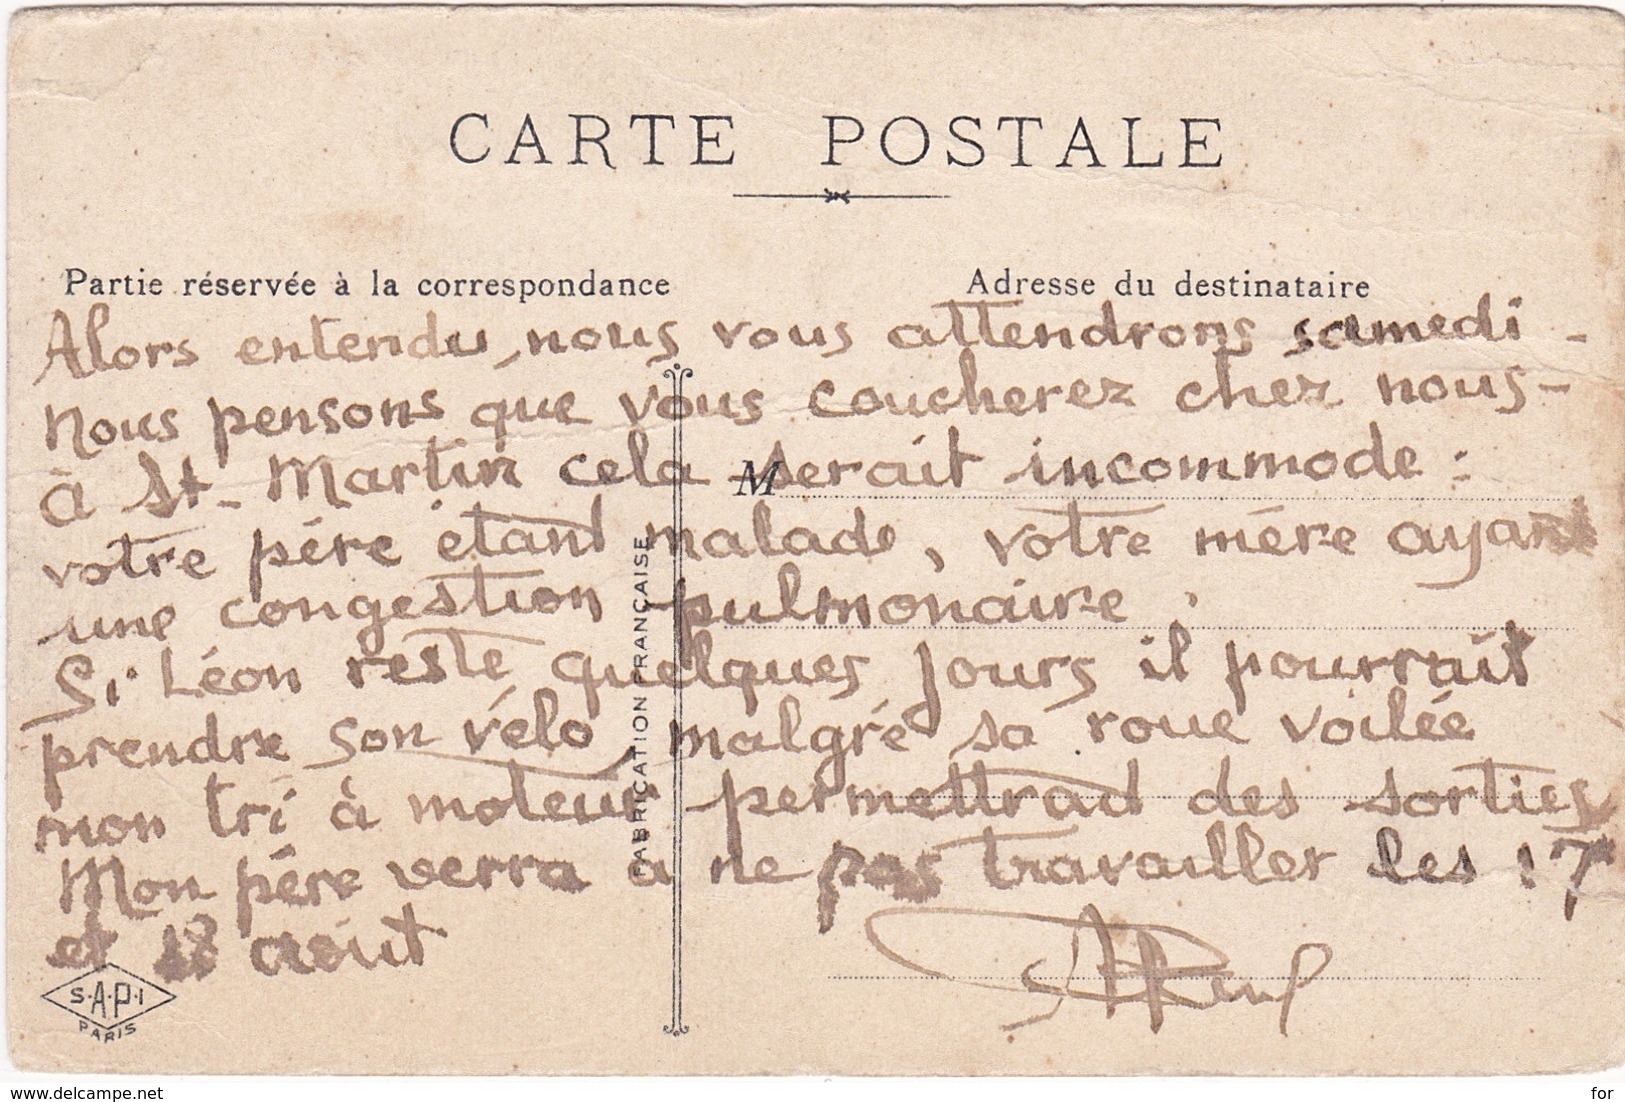 CARTE POSTALE
Partie réservée à la correspondance
Adresse du destinataire
Alors entendu, nous vous attendrons samedi -
Nous pensons que vous coucherez chez nous -
à St-Martin cela serait incommode :
M
votre père étant malade, votre mère ayant
une congestion pulmonaire.
Si Léon reste quelques jours il pourrait
prendre son vélo, malgré sa roue voilée
mon tri à moteur permettrait des sorties
Mon père verra à ne pas travailler les 17
et 18 août
FABRICATION FRANÇAISE
S.A.P.I
PARIS
delcampe.net
for